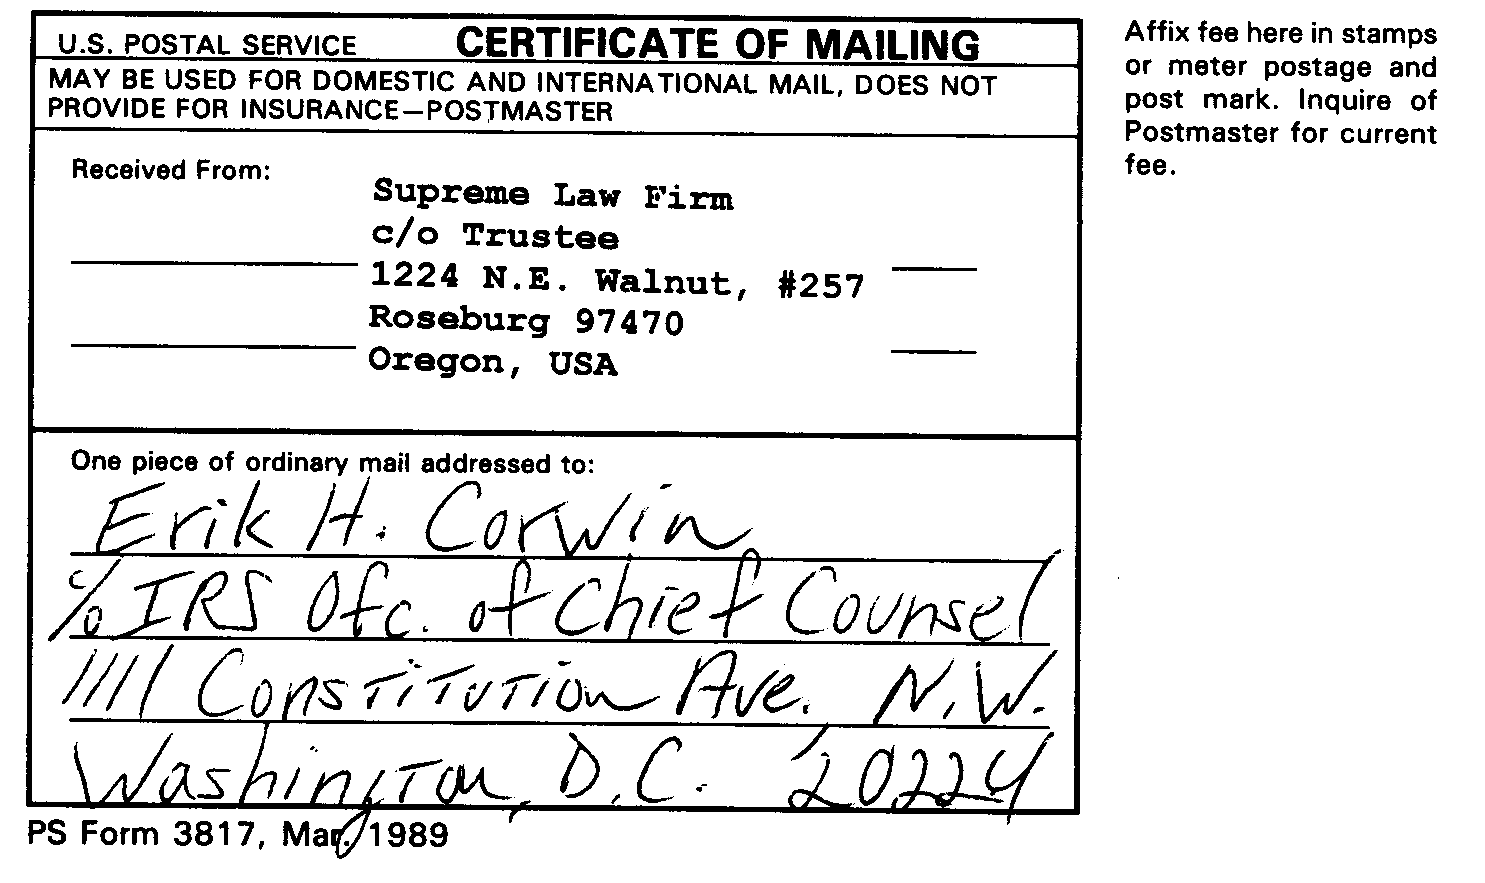 U.S. POSTAL SERVICE CERTIFICATE OF MAILING
MAY BE USED FOR DOMESTIC AND INTERNATIONAL MAIL, DOES NOT
PROVIDE FOR INSURANCE—POSTMASTER
Received From:
Supreme Law Firm
c/o Trustee
1224 N.E. Walnut, #257
Roseburg 97470
Oregon, USA
One piece of ordinary mail addressed to:
Erik H. Corwin
c/o IRS Ofc. of Chief Counsel
1111 Constitution Ave. N.W.
Washington, D.C. 20224
PS Form 3817, Mar. 1989
Affix fee here in stamps
or meter postage and
post mark. Inquire of
Postmaster for current
fee.